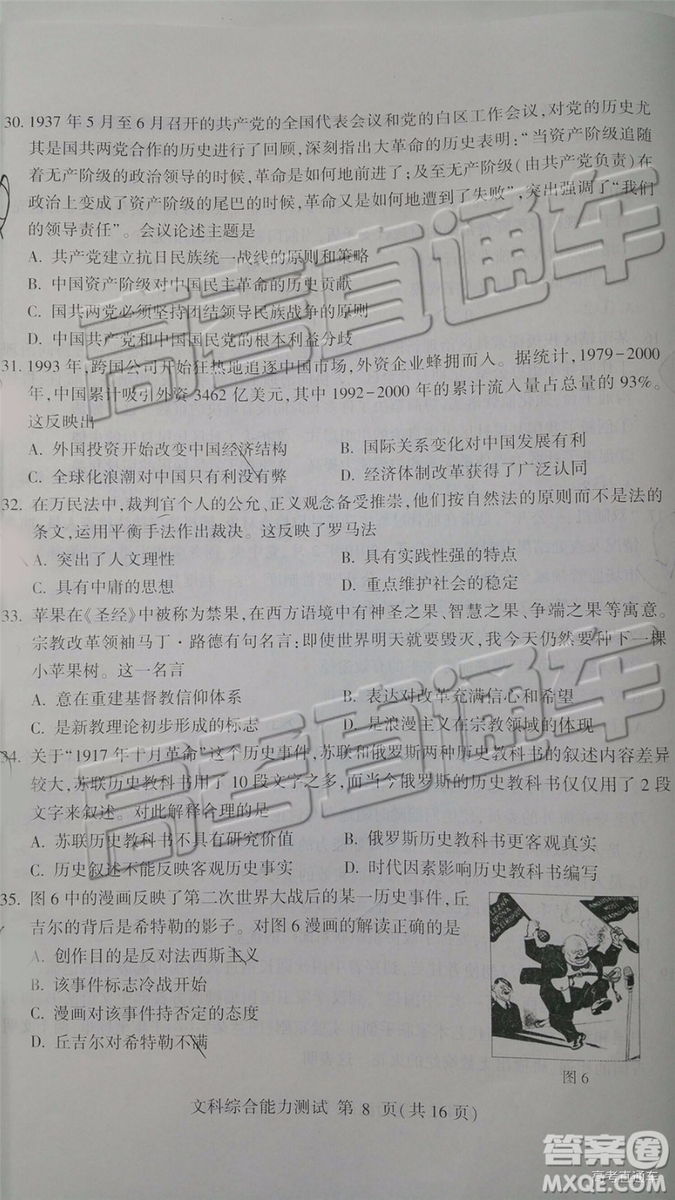 30. 1937 年 5 月至 6 月召开的共产党的全国代表会议和党的白区工作会议，对党的历史尤
其是国共两党合作的历史进行了回顾，深刻指出大革命的历史表明：“当资产阶级追随
着无产阶级的政治领导的时候，革命是如何地前进了；及至无产阶级(由共产党负责)在
政治上变成了资产阶级的尾巴的时候，革命又是如何地遭到了失败”，突出强调了“我们
的领导责任”。会议论述主题是
A. 共产党建立抗日民族统一战线的原则和策略
B. 中国资产阶级对中国民主革命的历史贡献
C. 国共两党必须坚持团结领导民族战争的原则
D. 中国共产党和中国国民党的根本利益分歧
31. 1993 年，跨国公司开始狂热地追逐中国市场，外资企业蜂拥而入。据统计，1979－2000
年，中国累计吸引外资 3462 亿美元，其中 1992－2000 年的累计流入量占总量的 93%。
这反映出
A. 外国投资开始改变中国经济结构 B. 国际关系变化对中国发展有利
C. 全球化浪潮对中国只有利没有弊 D. 经济体制改革获得了广泛认同
32. 在万民法中，裁判官个人的公允、正义观念备受推崇，他们按自然法的原则而不是法的
条文，运用平衡手法作出裁决。这反映了罗马法
A. 突出了人文理性 B. 具有实践性强的特点
C. 具有中庸的思想 D. 重点维护社会的稳定
33. 苹果在《圣经》中被称为禁果，在西方语境中有神圣之果、智慧之果、争端之果等寓意。
宗教改革领袖马丁·路德有句名言：即使世界明天就要毁灭，我今天仍然要种下一棵
小苹果树。这一名言
A. 意在重建基督教信仰体系 B. 表达对改革充满信心和希望
C. 是新教理论初步形成的标志 D. 是浪漫主义在宗教领域的体现
34. 关于“1917 年十月革命”这个历史事件，苏联和俄罗斯两种历史教科书的叙述内容差异
较大，苏联历史教科书用了 10 段文字之多，而当今俄罗斯的历史教科书仅仅用了 2 段
文字来叙述。对此解释合理的是
A. 苏联历史教科书不具有研究价值 B. 俄罗斯历史教科书更客观真实
C. 历史叙述不能反映客观历史事实 D. 时代因素影响历史教科书编写
35. 图 6 中的漫画反映了第二次世界大战后的某一历史事件，丘
吉尔的背后是希特勒的影子。对图 6 漫画的解读正确的是
A. 创作目的是反对法西斯主义
B. 该事件标志冷战开始
C. 漫画对该事件持否定的态度
D. 丘吉尔对希特勒不满
图 6
文科综合能力测试 第 8 页(共 16 页)
高考直通车
高考直通车
答案圈
高考直通车
MXQE.COM